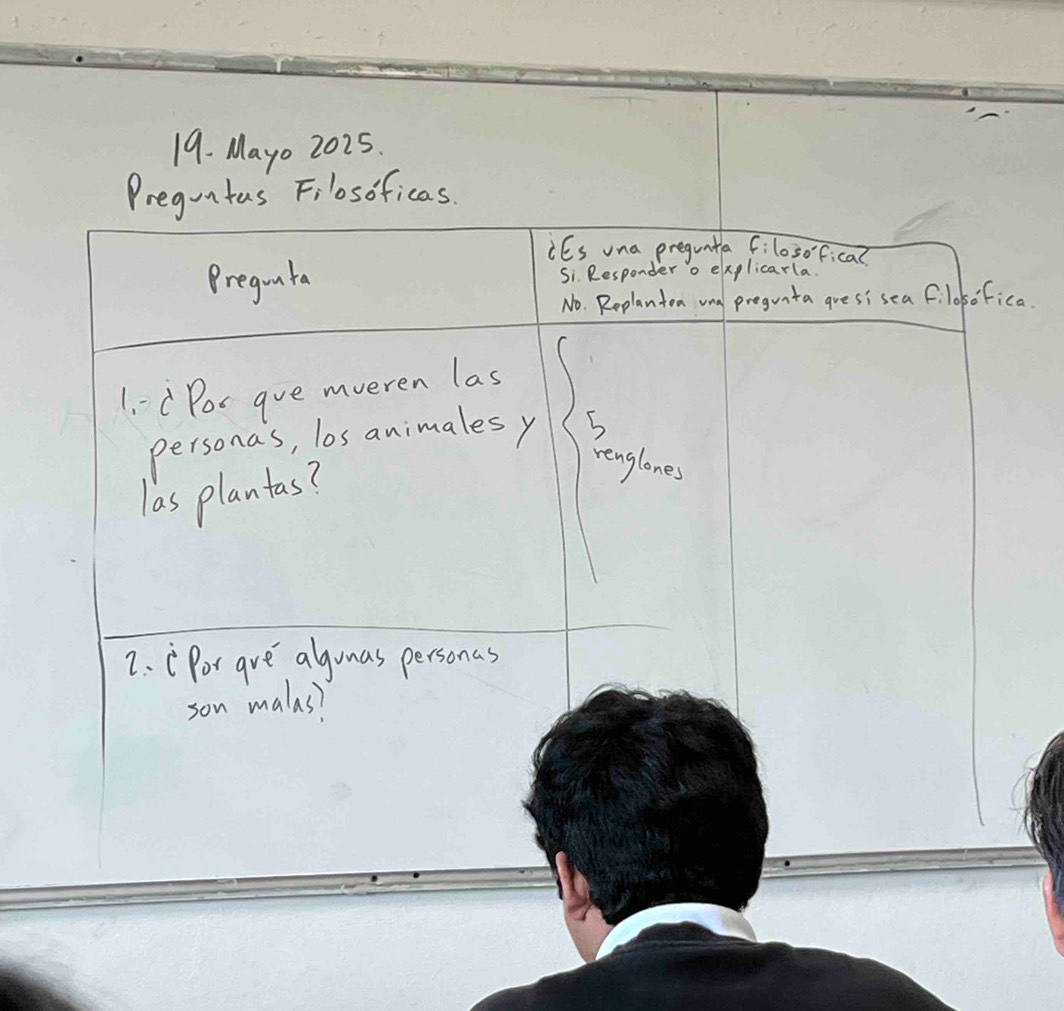 19. Mayo 2025.
Preguntas Filosóficas.
Pregunta
¿Es una pregunta filosófica?
Si. Responder o explicarla.
No. Replantea una pregunta que sí sea filosófica.
1.- ¿Por que mueren las
personas, los animales y
las plantas?
5
renglones
2.- ¿Por qué algunas personas
son malas?